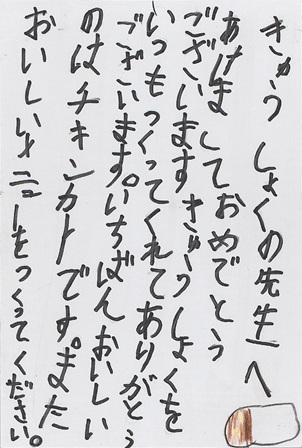 きゅうしょくの先生へ
あけましておめでとう
ございますきゅうしょくを
いつもつくってくれてありがとう
ございます。いちばんおいしい
のはチキンカトです。また
おいしいメニューをつくってください。